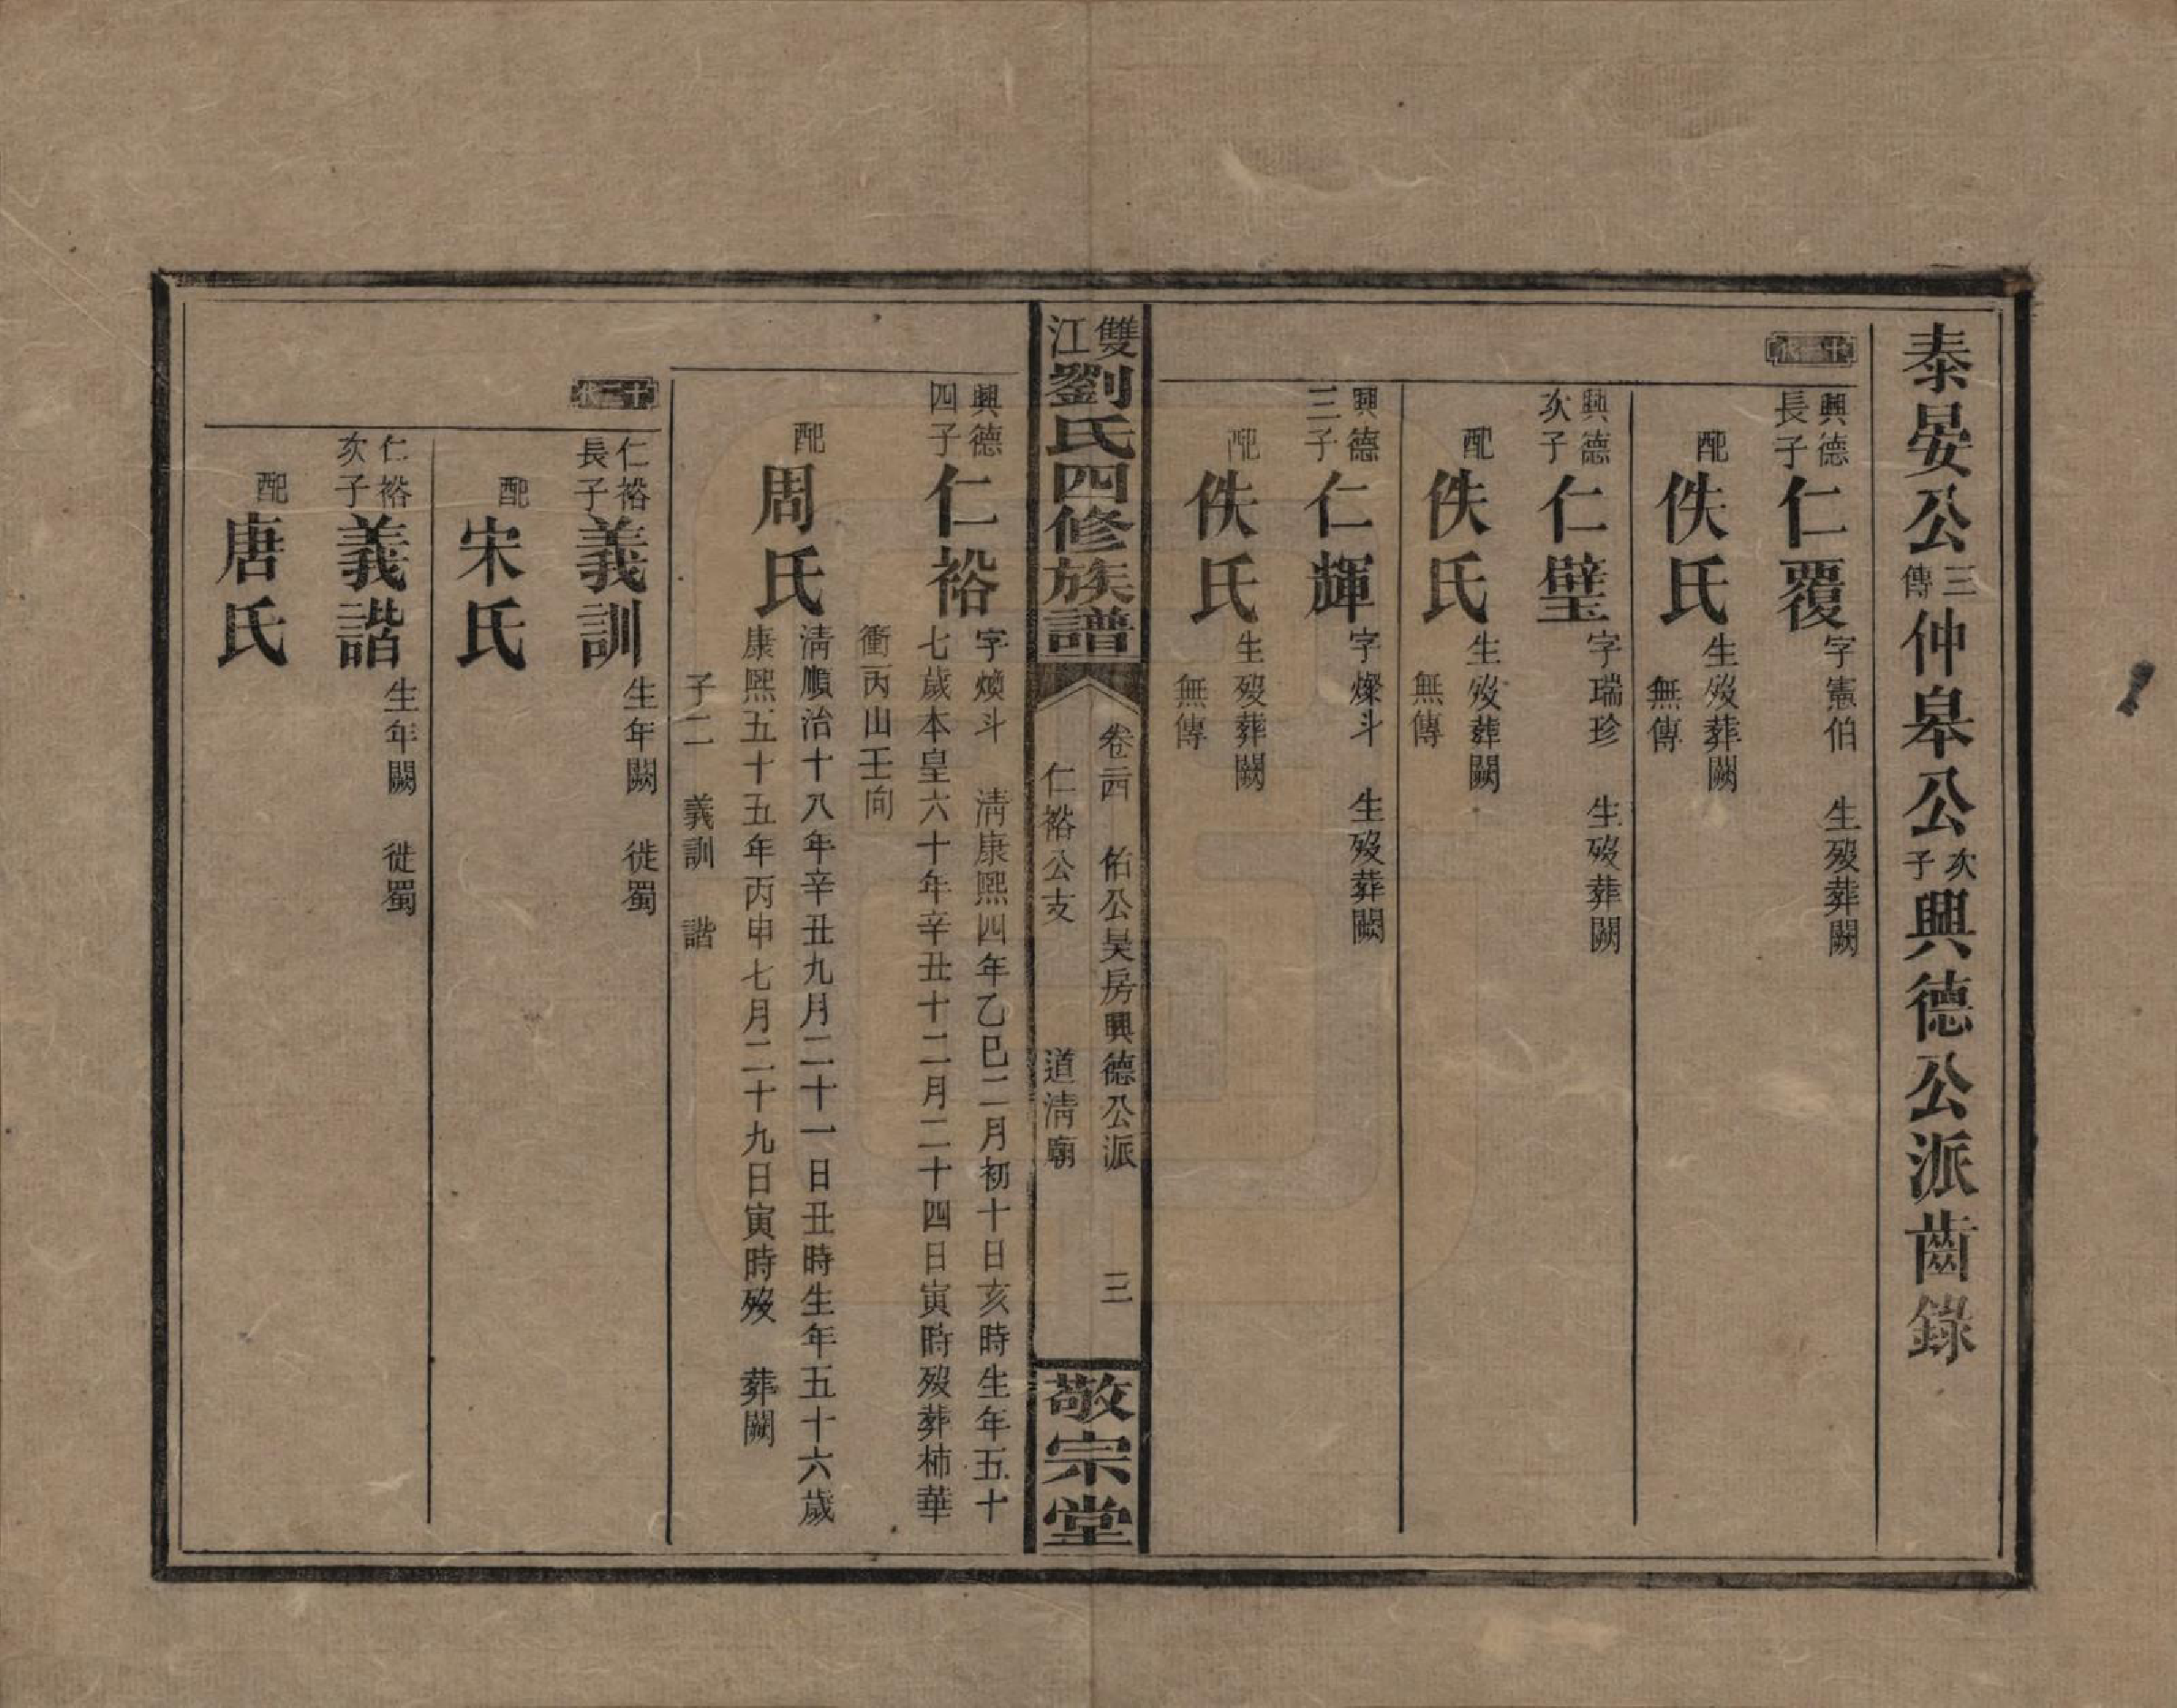 泰晏公三傳仲皋公次子興德公派齒錄
十一世
興德長子仁覆字憲伯　生歿葬闕
配佚氏生歿葬闕
無傳
興德次子仁璧字瑞珍　生歿葬闕
配佚氏生歿葬闕
無傳
興德三子仁輝字燦斗　生歿葬闕
配佚氏生歿葬闕
無傳
雙江劉氏四修族譜
卷二四　佑公昊房興德公派　三
仁裕公支　道淸廟
敬宗堂
興德四子仁裕字煥斗　淸康熙四年乙巳二月初十日亥時生年五十
七歲本皇六十年辛丑十二月二十四日寅時歿葬柿華
衝丙山壬向
配周氏淸順治十八年辛丑九月二十一日丑時生年五十六歲
康熙五十五年丙申七月二十九日寅時歿　葬闕
子二　義訓　諧
十二世
仁裕長子義訓生年闕　徙蜀
配宋氏
仁裕次子義諧生年闕　徙蜀
配唐氏